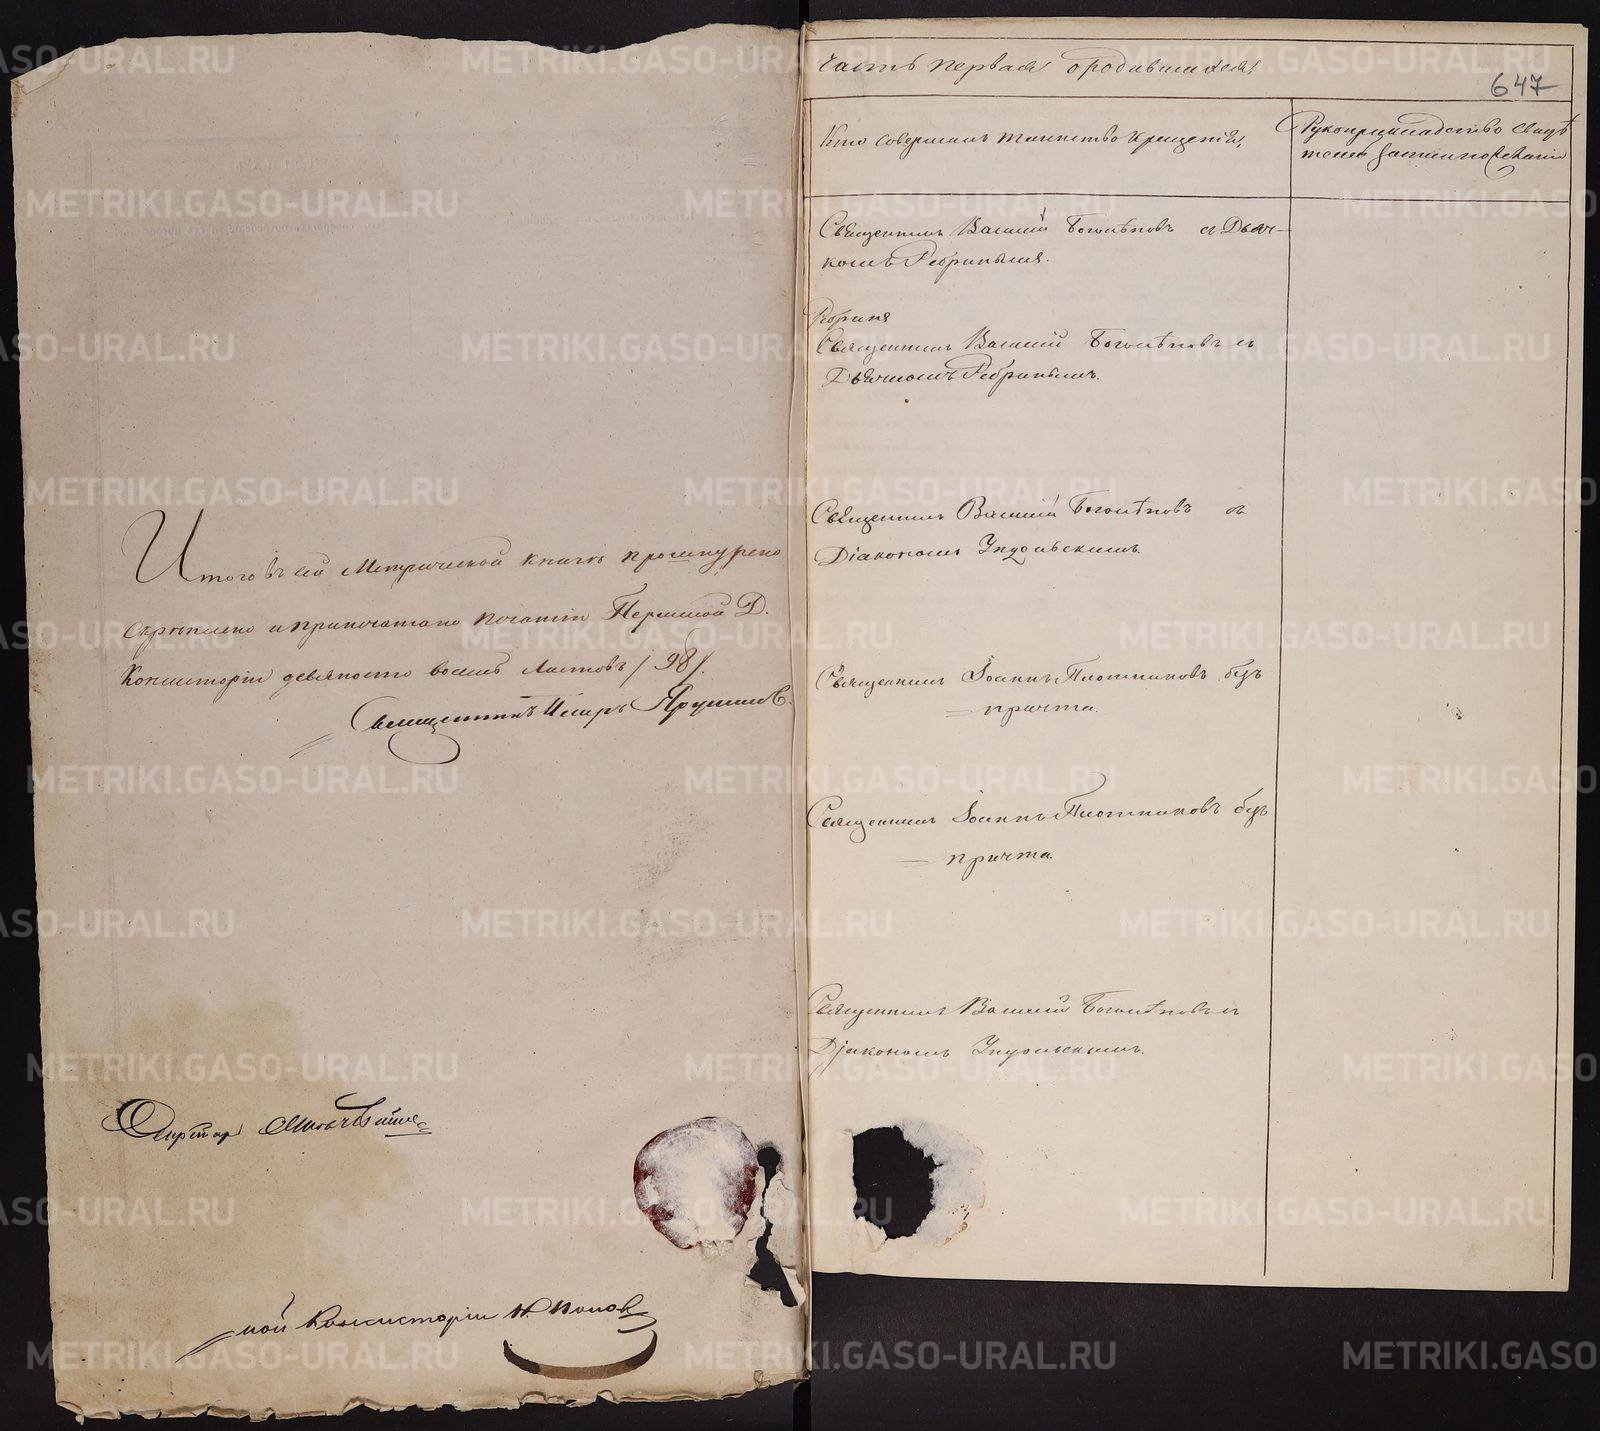 Итого въ сей Метрической книгѣ прошнурено
скрѣплено и припечатано печатію Пермской Д.
Консисторіи девяносто восемь листовъ / 98 /.
Священникъ
Секретарь
ной Консисторіи Н. Попов
часть первая о родившихся
647
Кто совершалъ таинство крещенія,
Рукоприкладство свидѣ
телей записи по желанію
Священникъ Василій Боголѣповъ съ Дьяч-
комъ Ребринымъ.
Священникъ Василій Боголѣповъ съ
Дьячкомъ Ребринымъ.
Священникъ Василій Боголѣповъ съ
Діакономъ
Священникъ Іоаннъ Плотниковъ безъ
причта.
Священникъ Іоаннъ Плотниковъ безъ
причта.
Священникъ Василій Боголѣповъ съ
Діакономъ
METRIKI.GASO-URAL.RU